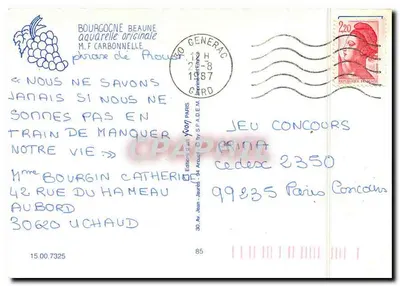 BOURGOGNE BEAUNE
aquarelle originale
M.F CARBONNELLE
phrase de Proust
« NOUS NE SAVONS
JAMAIS SI NOUS NE
SOMMES PAS EN
TRAIN DE MANQUER
NOTRE VIE »
Mme BOURGIN CATHERINE
42 RUE DU HAMEAU
AUBORD
30620 UCHAUD
15.00.7325
85
30 GENERAC
1987
GARD
2,20
JEU CONCOURS
CEDEX 2350
99235 Paris Concours
yvon PARIS
CPARAMA